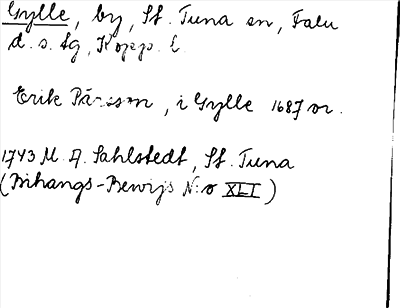 Gylle, by, St. Tuna sn, Falu
d. s. lg, Kopp. l.
Erik Pärsson, i Gylle 1687 or.
1743 M. A. Sahlstedt, St. Tuna
(Bihangs-Bewijs N:o XLI)